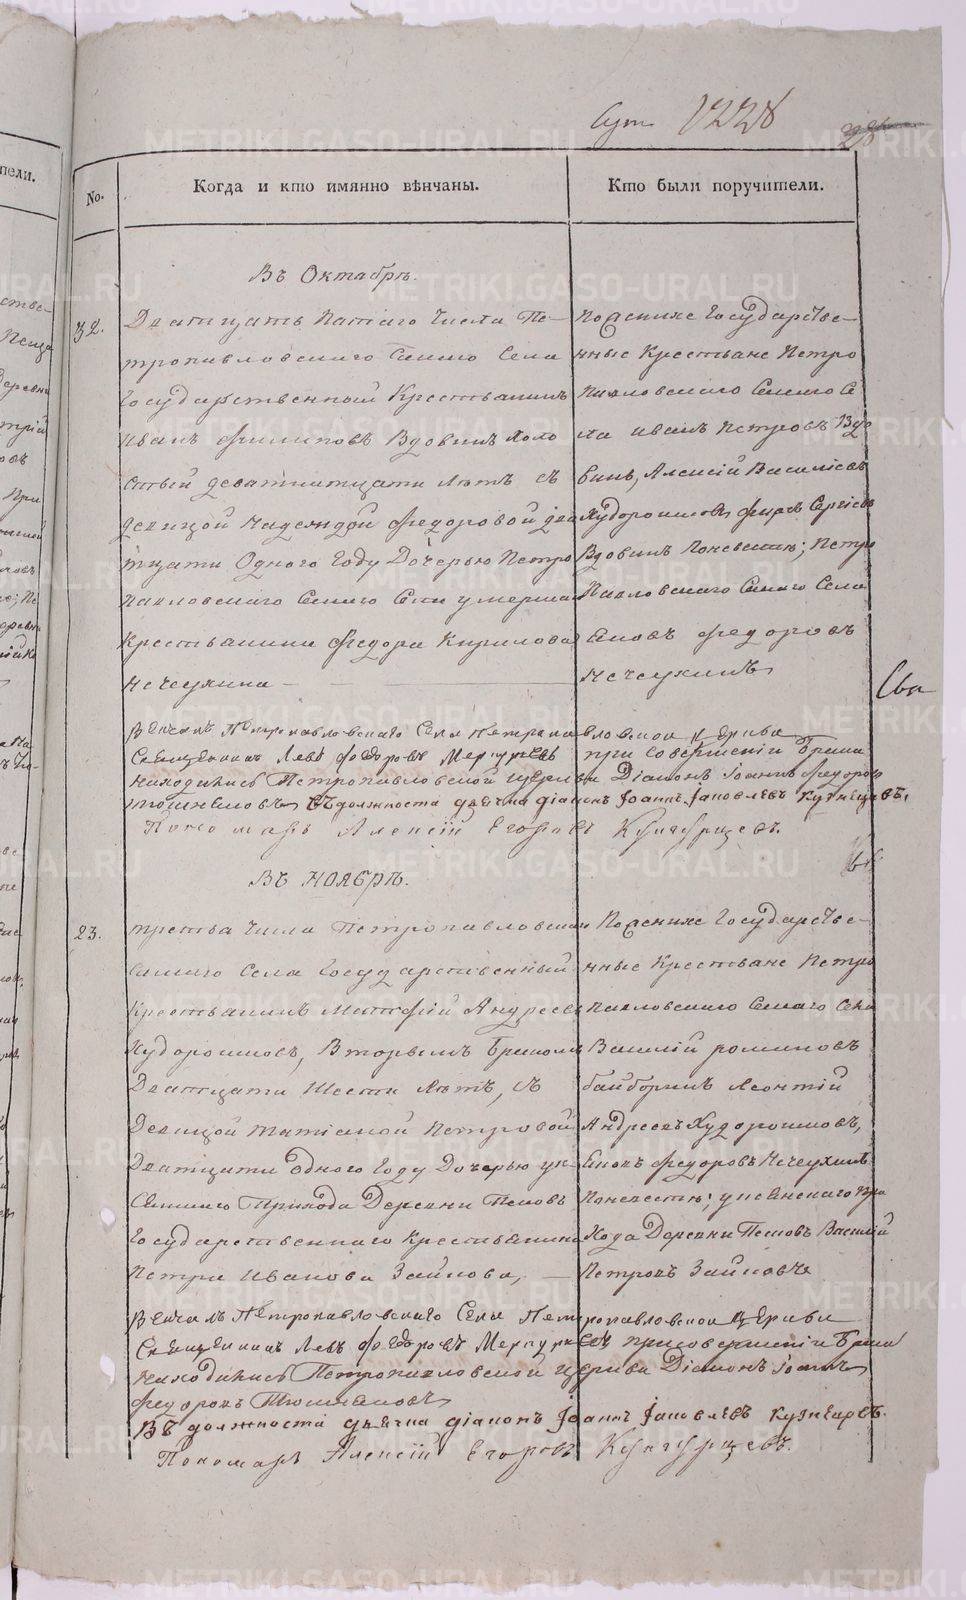 1228
28
No.
Когда и кто имянно вѣнчаны.
Кто были поручители.
Въ Октябрѣ.
32.
Дватцать Пятаго Числа Пе-
тропавловскаго Самаго Села
Государственный Крестьянинъ
Иванъ Филиповъ Вдовинъ Холо
стый девятнатцати Лѣтъ съ
девицой Надеждой Федоровой два
тцати Одного Году Дочерью Петро
Павловскаго Самаго Села умершаго
Крестьянина Федора Кирилова
Нечеухина
По женихе Государстве-
нные Крестьяне Петро
Павловскаго Самаго Се
ла Иванъ Петровъ Вдо
винъ, Алексей Василіевъ
Худорошковъ, Фирсъ Сергіевъ
Вдовинъ По невестѣ; Петро
Павловскаго Самаго Села
Федоровъ
Нечеухинъ
Венчалъ Петропавловскаго Села Петропавловской церкви
Священникъ Левъ Федоровъ Меркурьевъ при совершеніи Брака
находились Петропавловской церкви Діаконъ Іоаннъ Федоровъ
въ должности дьячка діаконъ Іоаннъ Іаковлевъ Кузнецовъ.
Пономарь Алексій Егоровъ Кунгурцевъ.
Въ Ноябрѣ.
23.
третья Числа Петропавловскаго
Самаго Села Государственный
Крестьянинъ Матфей Андреевъ
Худорошковъ, Вторымъ Бракомъ
Дватцати Шести Лѣтъ, съ
Девицой Татіаной Петровой
Дватцати Одного Году Дочерью
Прихода Деревни
Государственнаго Крестьянина
Петра Иванова Заикова,
По женихе Государстве-
нные Крестьяне Петро
Павловскаго Самаго Села
Василій Романовъ
Байборинъ Леонтій
Андреевъ Худорошковъ,
Федоровъ Нечеухинъ
По невестѣ;
хода Деревни Василій
Петровъ Заиковъ
Венчалъ Петропавловскаго Села Петропавловской церкви
Священникъ Левъ Федоровъ Меркурьевъ при совершеніи Брака
находились Петропавловской церкви Діаконъ Іоаннъ
Федоровъ
Въ должности дьячка діаконъ Іоаннъ Іаковлевъ Кузнецовъ.
Пономарь Алексій Егоровъ Кунгурцевъ.
METRIKI.GASO-URAL.RU